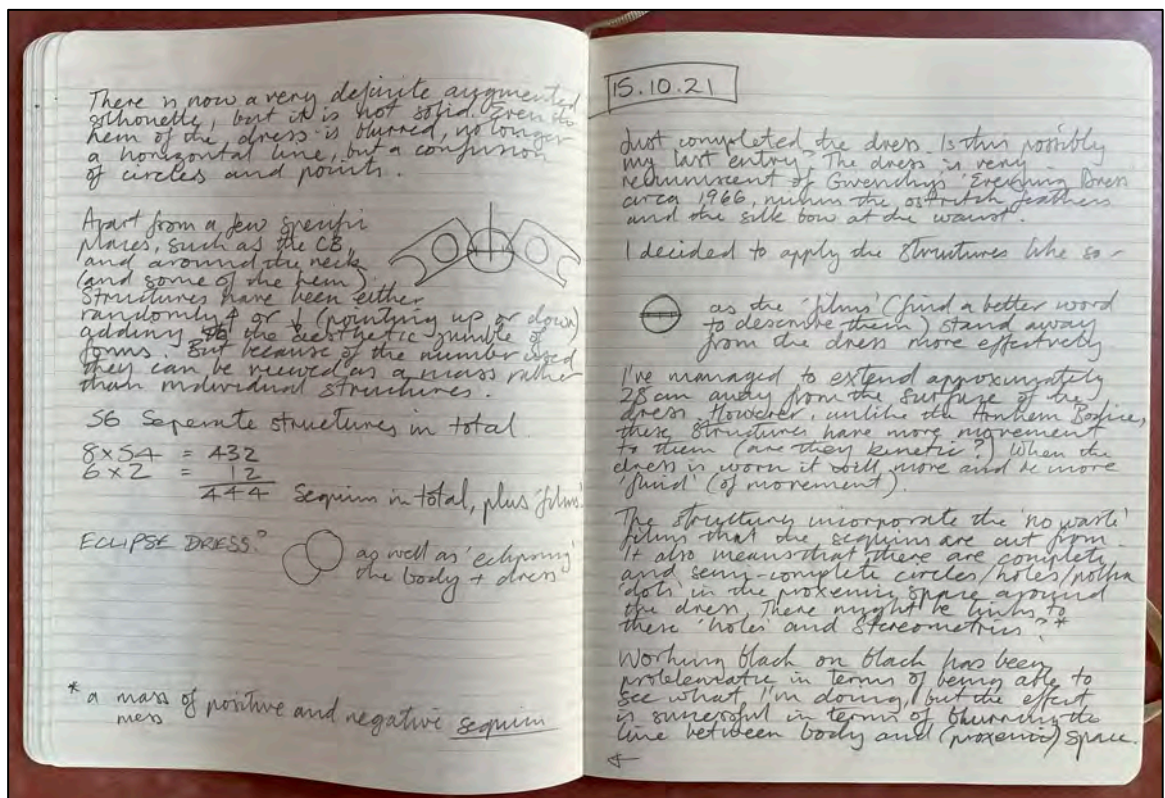 There is now a very definite augmented
silhouette, but it is not solid. Even the
hem of the dress is blurred, no longer
a horizontal line, but a confusion
of circles and points.
Apart from a few specific
places, such as the CB,
and around the neck
(and some of the hem).
Structures have been either
randomly ↑ or ↓ (pointing up or down)
adding to the aesthetic jumble of
forms. But because of the number used
they can be viewed as a mass rather
than individual structures.
56 Seperate structures in total.
8×54 = 432
6×2 = 12
444 Sequins in total, plus 'films'.
ECLIPSE DRESS?
as well as 'eclipsing'
the body + dress
* a mass of positive and negative sequin
mess
15.10.21
Just completed the dress. Is this possibly
my last entry? The dress is very
reminiscent of Givenchys 'Evening Dress
circa 1966, minus the ostrich feathers
and the silk bow at the waist.
I decided to apply the structures like so -
as the 'films' (find a better word
to describe them) stand away
from the dress more effectively.
I've managed to extend approximately
28cm away from the surface of the
dress. However, unlike the Arnhem Bodice,
these structures have more movement
to them (are they kinetic?) When the
dress is worn it will move and be more
'fluid' (of movement).
The structures incorporate the 'no waste'
films that the sequins are cut from.
It also means that there are complete
and semi-complete circles/holes/polka
dots in the proxemic space around
the dress. There might be links to
these 'holes' and Stereometrics?*
Working black on black has been
problematic in terms of being able to
see what I'm doing, but the effect
is successful in terms of blurring the
line between body and (proxemic) space.
←